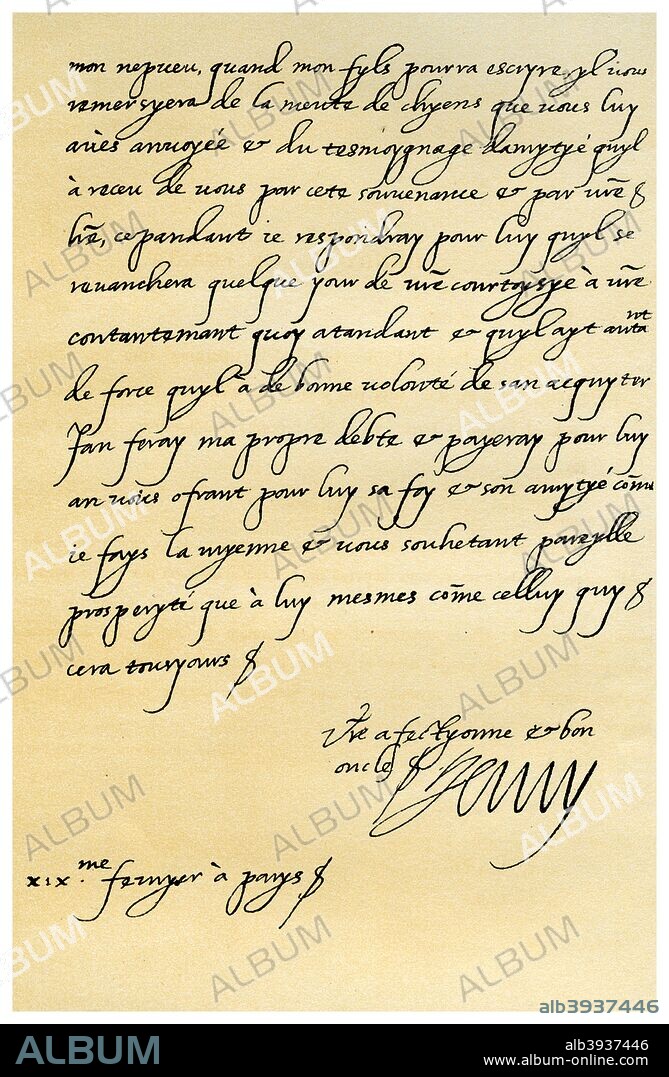 mon nepueu, quand mon fyls pourra escryre, yl vous
remersyera de la meute de chyens que vous luy
aues anuoyée & du tesmoygnage damytyé quyl
à receu de vous par cete souuenance & par vr̃e
lr̃e, cepandant ie respondray pour luy quyl se
reuanchera quelque your de vr̃e courtoysye à vr̃e
contantemant quoy atandant & quyl ayt autant
de force quyl à de bonne volonté de san acquyter
Jan feray ma propre debte & payeray pour luy
an vous ofrant pour luy sa foy & son amytyé com̃e
ie fays la myenne & vous souhetant pareylle
prosperyté que à luy mesmes com̃e celluy quy
cera tousyours
Vr̃e afectyonne & bon
oncle Henry
xıx.me feuryer à parys
ALBUM
alb3937446
ALBUM
alb3937446
www.album-online.com